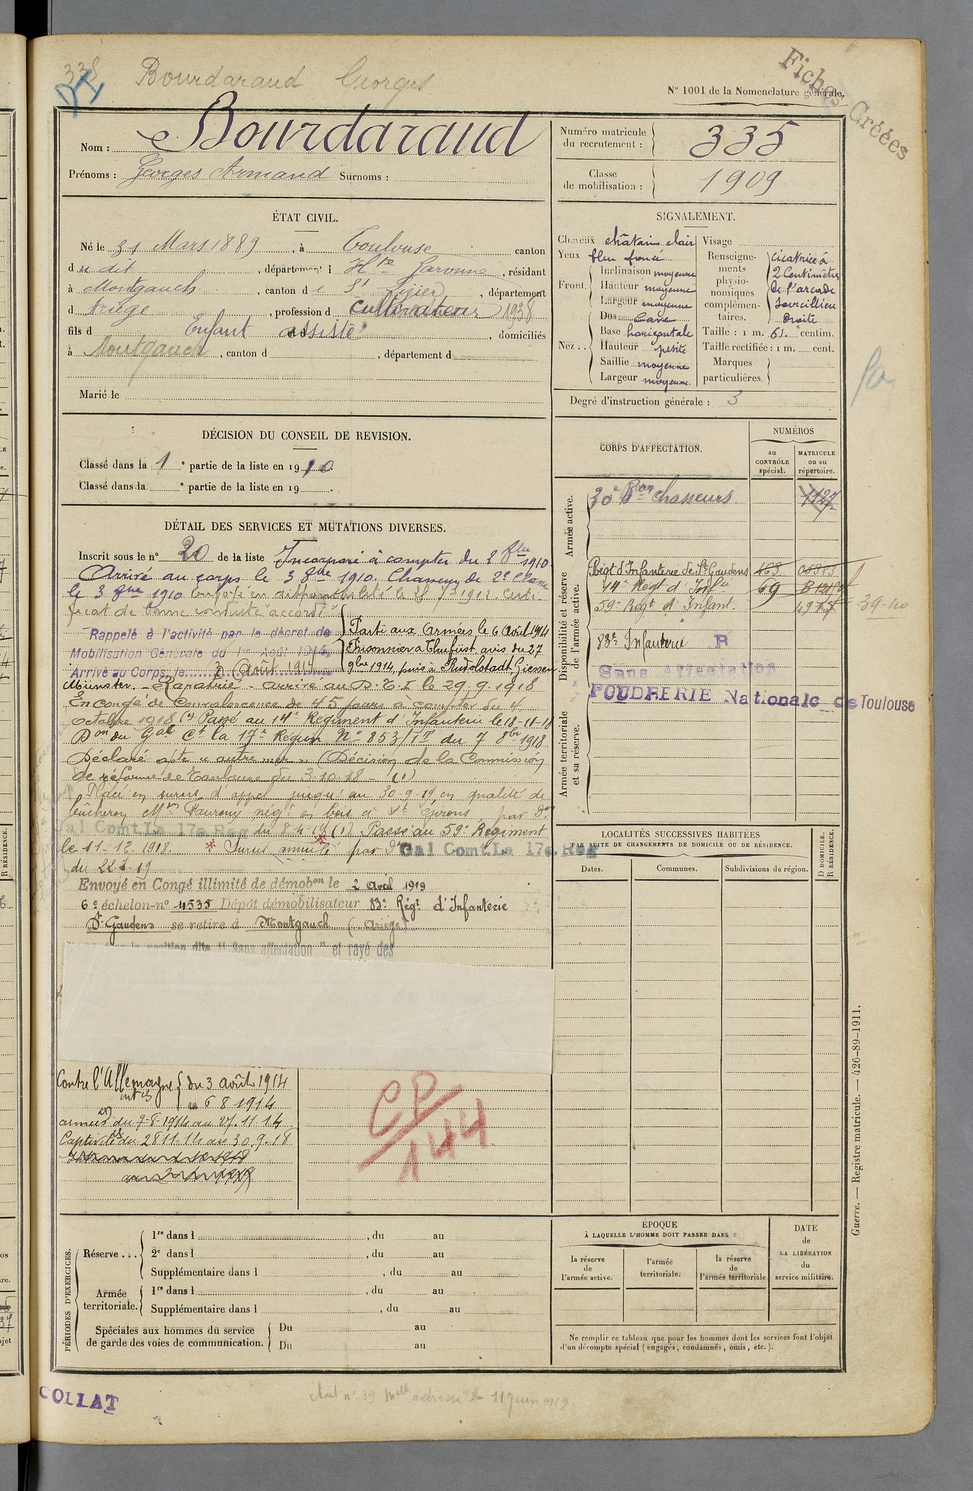 338 Bourdaraud Georges
N° 1001 de la Nomenclature générale.
Fiches Créées
Nom : Bourdaraud
Prénoms : Georges Armand Surnoms :
Numéro matricule du recrutement : 335
Classe de mobilisation : 1909
ÉTAT CIVIL.
Né le 31 Mars 1889, à Toulouse canton
du dit, département H<sup>te</sup> Garonne, résidant
à Montgauch, canton de S<sup>t</sup> Lizier, département
d Ariège, profession d Cultivateur 1938
fils d Enfant assisté domiciliés
à Montgauch, canton d , département d
Marié le
SIGNALEMENT.
Cheveux châtain clair
Yeux bleu foncé
Front. Inclinaison moyenne
Hauteur moyenne
Largeur moyenne
Nez. Dos Cave
Base horizontale
Hauteur petite
Saillie moyenne
Largeur moyenne.
Visage
Renseignements physionomiques complémentaires. Cicatrice à 2 Centimètres de l'arcade sourcillière droite
Taille : 1 m. 61. centim.
Taille rectifiée : 1 m. cent.
Marques particulières.
Degré d'instruction générale : 3
DÉCISION DU CONSEIL DE REVISION.
Classé dans la 1<sup>e</sup> partie de la liste en 1910.
Classé dans la <sup>e</sup> partie de la liste en 19 .
DÉTAIL DES SERVICES ET MUTATIONS DIVERSES.
Inscrit sous le n° 20 de la liste Incorporé à compter du 1910.
Arrivé au corps le 3 8bre 1910. Chasseur de 2e classe
le 3 8bre 1910 en disponibilité le 1912 Certi-
ficat de bonne conduite "accordé"
Rappelé à l'activité par le décret de
Mobilisation Générale du 1er Août 1914
Arrivé au Corps, le 3 Août 1914
Parti aux Armées le 6 Août 1914
Prisonnier à avis du 27
9bre 1914, puis à Rudolstadt, Giessen
Münster. - Rapatrié - arrivé au D. T. I. le 29.9.1918
En congé de Convalescence de 45 jours à compter du 4
octobre 1918 (1) Passé au 14e Régiment d'Infanterie le 18-11-18
Don du Gal Ct la 17e Région N° 853/ du 7 8bre 1918
Déclaré apte (Décision de la Commission
de réforme de Toulouse du 3-10-18 - (1)
Placé en sursis d'appel jusqu'au 30-9-19 en qualité de
bûcheron Mon négt en bois à St Girons par Don
Gal Comt La 17e Reg du 8-4-19 (1) Passé au 59e Régiment
le 11-12.1918. * Sursis annulé par Don Gal Comt La 17e Reg
du 22-4-19
Envoyé en Congé illimité de démobon le 2 Avril 1919
6e échelon-n° 4535 Dépôt démobilisateur 83e Régt d'Infanterie
St Gaudens se retire à Montgauch (Ariège)
la position dite "Sans affectation" et rayé des
Contre l'Allemagne du 3 août 1914
intés au 6 8 1914
armées du 7-8-1914 au 27.11.14
Captivité du 28 11.14 au 30.9.18
CP/144
CORPS D'AFFECTATION.
NUMÉROS
au CONTRÔLE spécial.
MATRICULE ou au répertoire.
Armée active.
30e Bon Chasseurs 1127
Disponibilité et réserve de l'armée active.
Régt d'Infanterie de St Gaudens
14e Regt d'Infie 59
59e Regt d'Infant.
39-40
83e Infanterie R
Sans Affectation
POUDRERIE Nationale de Toulouse
Armée territoriale et sa réserve.
LOCALITÉS SUCCESSIVES HABITÉES
PAR SUITE DE CHANGEMENTS DE DOMICILE OU DE RÉSIDENCE.
Dates. Communes. Subdivisions de région. D DOMICILE. R RÉSIDENCE.
PÉRIODES D'EXERCICES.
Réserve ... 1re dans l , du au
2e dans l , du au
Supplémentaire dans l , du au
Armée territoriale. 1re dans l , du au
Supplémentaire dans l , du au
Spéciales aux hommes du service de garde des voies de communication. Du au
Du au
ÉPOQUE
À LAQUELLE L'HOMME DOIT PASSER DANS :
la réserve de l'armée active.
l'armée territoriale.
la réserve de l'armée territoriale
DATE de LA LIBÉRATION du service militaire.
Ne remplir ce tableau que pour les hommes dont les services font l'objet
d'un décompte spécial (engagés, condamnés, omis, etc.).
Guerre. — Registre matricule. — 426-89-1911.
COLLAT
état n° 39 adressé le 11 juin 1919